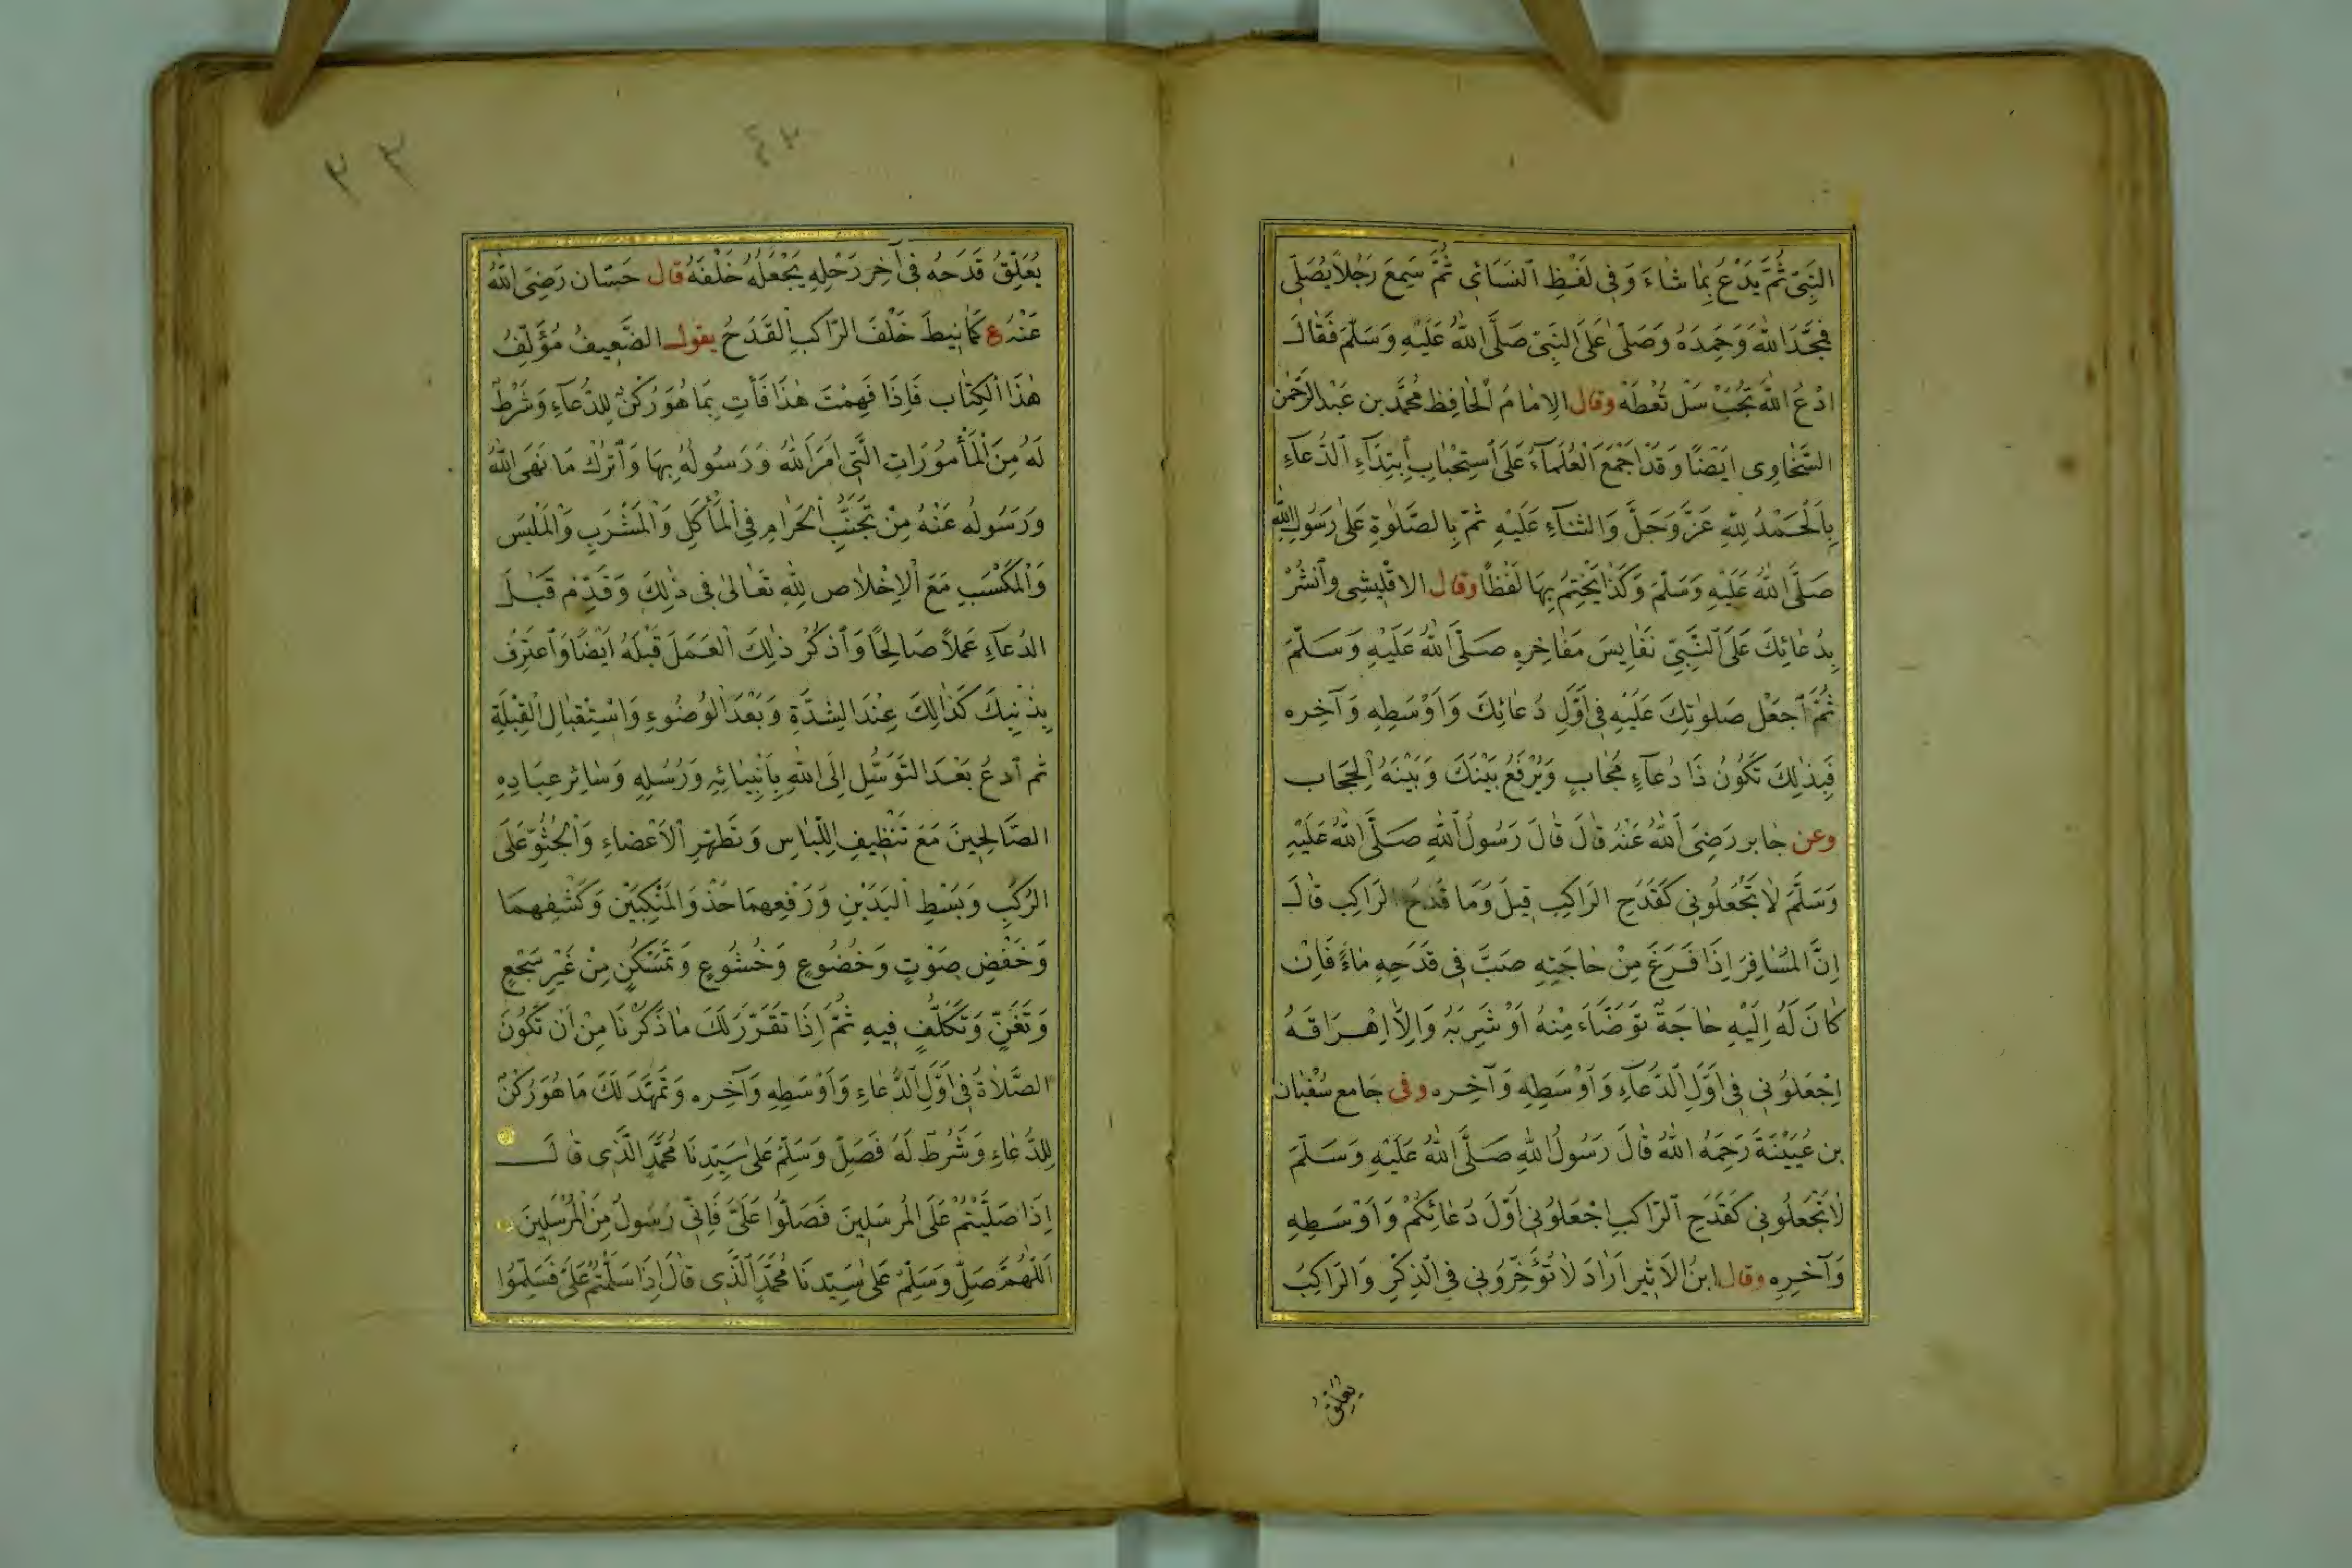 النَّبِيِّ ثُمَّ يَدْعُ بِمَا شَاءَ وَفِي لَفْظِ النَّسَائِي ثُمَّ سَمِعَ رَجُلاً يُصَلِّي
فَمَجَّدَ اللّٰهَ وَحَمِدَهُ وَصَلَّى عَلَى النَّبِيِّ صَلَّى اللّٰهُ عَلَيْهِ وَسَلَّمَ فَقَالَ
ادْعُ اللّٰهَ تُجَبْ سَلْ تُعْطَهْ وقال الإمَامُ الْحَافِظ مُحَمَّد بن عَبْد الرَّحْمٰن
السَّخَاوِي اَيْضًا وَقَدْ اَجْمَعَ الْعُلَمَاءُ عَلَى اسْتِحْبَابِ ابْتِدَاءِ الدُّعَاءِ
بِالْحَمْدُ لِلّٰهِ عَزَّ وَجَلَّ وَالثَّنَاءِ عَلَيْهِ ثُمَّ بِالصَّلٰوةِ عَلَى رَسُولِ اللّٰهِ
صَلَّى اللّٰهُ عَلَيْهِ وَسَلَّمَ وَكَذَا يَخْتِمُ بِهَا لَفْظًا وقال الاقْلِيشِي وَانْشُرْ
بِدُعَائِكَ عَلَى النَّبِيِّ نَفَايِسَ مَفَاخِرِهِ صَلَّى اللّٰهُ عَلَيْهِ وَسَلَّمَ
ثُمَّ اجْعَلْ صَلوٰتِكَ عَلَيْهِ فِي اَوَّلِ دُعَائِكَ وَاَوْسَطِهِ وَآخِرِه
فَبِذٰلِكَ تَكُونُ ذَا دُعَاءٍ مُجَابٍ وَيُرْفَعُ بَيْنَكَ وَبَيْنَهُ الْحِجَاب
وعن جَابر رَضِيَ اللّٰهُ عَنْهُ قَالَ قَالَ رَسُولُ اللّٰهِ صَلَّى اللّٰهُ عَلَيْهِ
وَسَلَّمَ لَا تَجْعَلُونِي كَقَدَحِ الرَاكِب قِيلَ وَمَا قَدَحُ الرَاكِب قَالَ
إِنَّ الْمُسَافِرَ إِذَا فَرَغَ مِنْ حَاجَتِهِ صَبَّ فِي قَدَحِهِ مَاءً فَاِنْ
كَانَ لَهُ اِلَيْهِ حَاجَةٌ تَوَضَّاَءَ مِنْهُ اَوْ شَرِبَهُ وَاِلَّا اِهْرَاقَهُ
اِجْعَلُونِي فِي اَوَّلِ الدُّعَاءِ وَاَوْسَطِهِ وَآخِرِه وفى جَامع سُفْيَان
بن عُيَيْنَةَ رَحِمَهُ اللّٰهُ قَالَ رَسُولُ اللّٰهِ صَلَّى اللّٰهُ عَلَيْهِ وَسَلَّمَ
لَا تَجْعَلُونِي كَقَدَحِ الرَّاكِبِ اِجْعَلُونِي اَوَّلَ دُعَائِكُمْ وَاَوْسَطِهِ
وَآخِرِهِ وقال ابنُ الاَثِير اَرَادَ لَا تُؤَخِّرُونِي فِي الذِّكْرِ وَالرَّاكِبُ
يعلق
٣٣
يُعَلِّقُ قَدَحه فِي آخِر رَحْلِهِ يَجْعَلُهُ خَلْفَهُ قال حَسَّان رَضِيَ اللّٰهُ
عَنْهُ ع كَمَا نِيطَ خَلْفَ الرَّاكِبِ الْقَدَحُ يقول الضَّعِيفُ مُؤَلِّفُ
هٰذَا الْكِتَاب فَإِذَا فَهِمْتَ هٰذَا فَأْتِ بِمَا هُوَ رُكْنٌ لِلدُّعَاءِ وَشَرْطٌ
لَهُ مِنَ الْمَأْمُورَاتِ الَّتِي اَمَرَ اللّٰهُ وَرَسُولُهُ بِهَا وَاتْرُكْ مَا نَهَى اللّٰهُ
وَرَسُولُه عَنْهُ مِنْ تَجَنُّبِ الْحَرَامِ فِي الْمَأْكَلِ وَالْمَشْرَبِ وَالْمَلْبَس
وَالْمَكْسَبِ مَعَ الْإِخْلَاص لِلّٰهِ تَعَالَى فِي ذٰلِكَ وَقَدِّمْ قَبْلَ
الدُّعَاءِ عَمَلاً صَالِحًا وَاذْكُرْ ذٰلِكَ الْعَمَلَ قَبْلَهُ اَيْضًا وَاعْتَرِفْ
بِذَنْبِكَ كَذَالِكَ عِنْدَ الشِدَّةِ وَبَعْدَ الْوُضُوءِ وَاسْتِقْبَالِ الْقِبْلَةِ
ثم ادعُ بَعْدَ التَوَسُّلِ اِلَى اللّٰهِ بِأَنْبِيَائِهِ وَرُسُلِهِ وَسَائِر عِبَادِهِ
الصَّالِحِينَ مَعَ تَنْظِيفِ اللِّبَاسِ وَتَطْهِرِ الْاَعْضَاءِ وَالْجُثُوِّ عَلَى
الرُكَبِ وَبَسْطِ الْيَدَيْنِ وَرَفْعِهِمَا حَذْوَ الْمَنْكِبَيْنِ وَكَشْفِهِمَا
وَخَفْضِ صَوْتٍ وَخُضُوعٍ وَخُشُوعٍ وَتَمَسْكُنٍ مِنْ غَيْرِ سَجْعٍ
وَتَغَنٍّ وَتَكَلُّفٍ فِيهِ ثُمَّ اِذَا تَقَرَّرَ لَكَ مَا ذَكَرْنَا مِنْ اَنْ تَكُونَ
الصَّلَاةُ فِي اَوَّلِ الدُّعَاءِ وَاَوْسَطِهِ وَآخِرِه وَتَمَهَّدَ لَكَ مَا هُوَ رُكْنٌ
لِلدُّعَاءِ وَشَرْطٌ لَهُ فَصَلِّ وَسَلِّمْ عَلَى سَيِّدِنَا مُحَمَّدٍ الَّذِي قَالَ
اِذَا صَلَّيْتُمْ عَلَى الْمُرسَلِينَ فَصَلُّوا عَلَيَّ فَاِنِّي رَسُولٌ مِنَ الْمُرْسَلِينَ
اَللّٰهُمَّ صَلِّ وَسَلِّمْ عَلَى سَيِّدِنَا مُحَمَّدٍ الَّذِي قَالَ اِذَا سَلَّمْتُمْ عَلَيَّ فَسَلِّمُوا